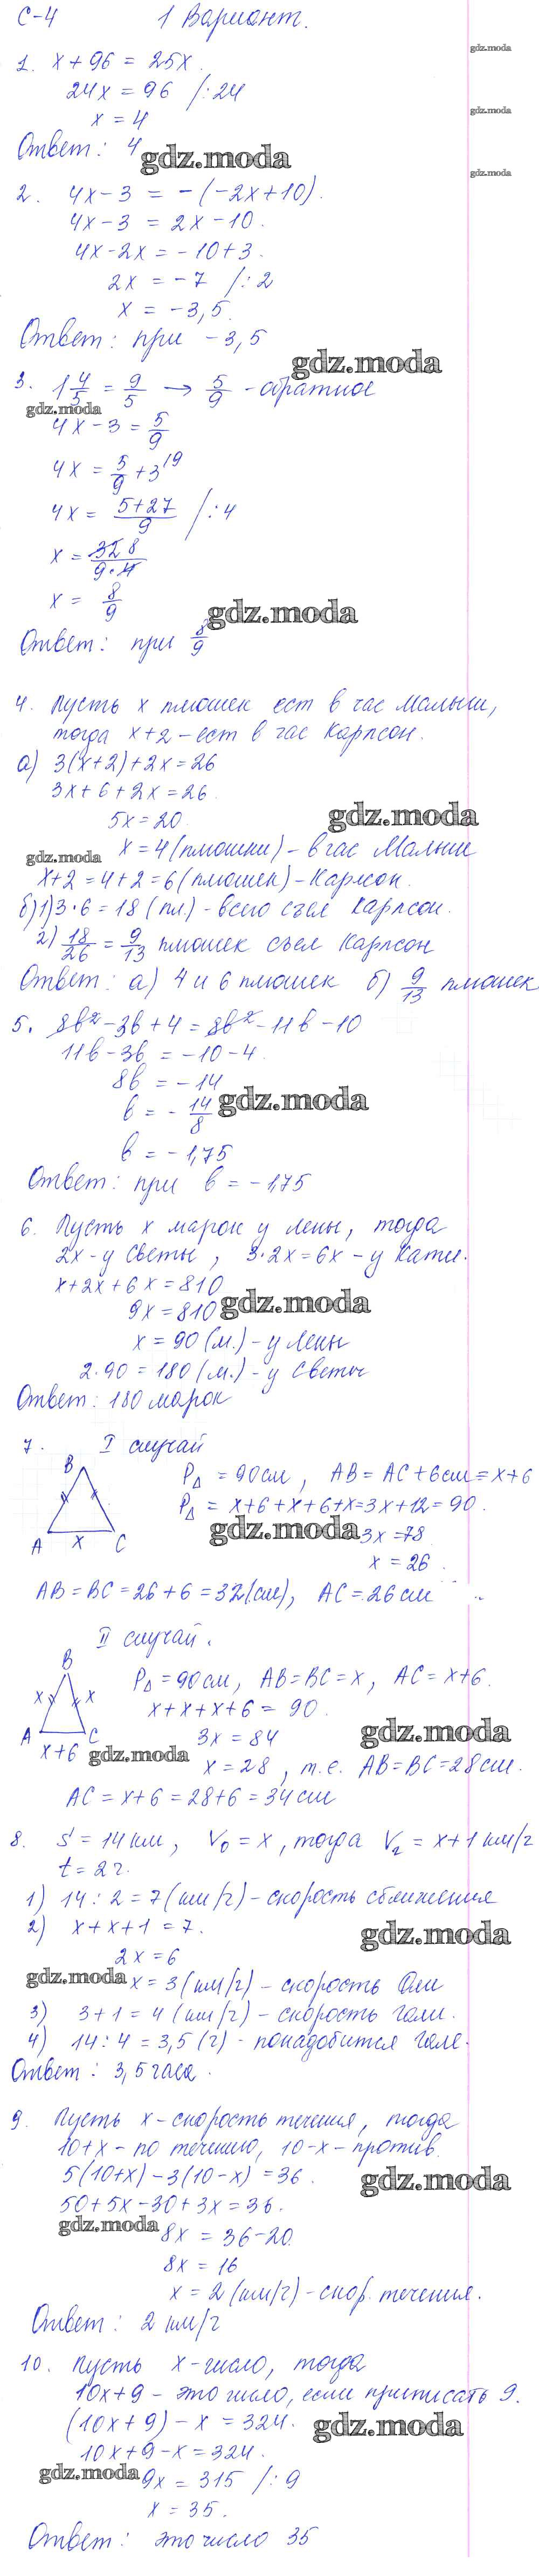 С-4 1 Вариант.
gdz.moda
1. x + 96 = 25x.
24x = 96 /:24
gdz.moda
x = 4
Ответ: 4
gdz.moda
gdz.moda
2. 4x - 3 = -(-2x+10).
4x - 3 = 2x - 10.
4x - 2x = -10 + 3.
2x = -7 /:2
x = -3,5.
Ответ: при -3,5
gdz.moda
3. 1 4/5 = 9/5 → 5/9 - обратное
gdz.moda
4x - 3 = 5/9
4x = 5/9 + 3^19
4x = (5+27)/9 /:4
x = 32 8/(9·4)
x = 8/9
gdz.moda
Ответ: при 8/9
4. Пусть x плюшек ест в час Малыш,
тогда x+2 - ест в час Карлсон.
а) 3(x+2)+2x=26
3x+6+2x=26.
5x=20
gdz.moda
x=4 (плюшки) - в час Малыш
gdz.moda
x+2=4+2=6 (плюшек) - Карлсон.
б) 1) 3·6=18 (пл.) - всего съел Карлсон.
2) 18/26 = 9/13 плюшек съел Карлсон
Ответ: а) 4 и 6 плюшек б) 9/13 плюшек
5. 8b² - 3b + 4 = 8b² - 11b - 10
11b - 3b = -10 - 4.
8b = -14
b = - 14/8
gdz.moda
b = -1,75
Ответ: при b = -1,75
6. Пусть x марок у Лены, тогда
2x - у Светы, 3·2x = 6x - у Кати.
x+2x+6x=810
9x=810
gdz.moda
x = 90 (м.) - у Лены
2·90=180 (м.) - у Светы
Ответ: 180 марок
7. I случай
B
P△ = 90 см, AB = AC + 6 см = x+6
P△ = x+6+x+6+x=3x+12=90.
gdz.moda
3x=78
A x C
x = 26.
AB = BC = 26+6 = 32 (см), AC = 26 см
II случай.
B
P△ = 90 см, AB=BC=x, AC=x+6.
x x
x+x+x+6 = 90.
A C
3x = 84
gdz.moda
x+6
gdz.moda
x=28, т.е. AB=BC=28 см.
AC = x+6 = 28+6 = 34 см
8. S = 14 км, V₀ = x, тогда V₂ = x+1 км/ч
t = 2 ч.
1) 14 : 2 = 7 (км/ч) - скорость сближения
2) x+x+1 = 7.
gdz.moda
2x = 6
gdz.moda
x = 3 (км/ч) - скорость Оли
3) 3+1 = 4 (км/ч) - скорость Гали.
4) 14 : 4 = 3,5 (ч) - понадобится Гале.
Ответ: 3,5 часа.
9. Пусть x - скорость течения, тогда
10+x - по течению, 10-x - против.
5(10+x) - 3(10-x) = 36.
gdz.moda
50+5x-30+3x=36.
gdz.moda
8x = 36-20
8x = 16
x = 2 (км/ч) - скор. течения.
Ответ: 2 км/ч
10. Пусть x - число, тогда
10x+9 - это число, если приписать 9.
(10x+9) - x = 324.
gdz.moda
10x+9-x=324.
gdz.moda
9x = 315 /:9
x = 35.
Ответ: это число 35